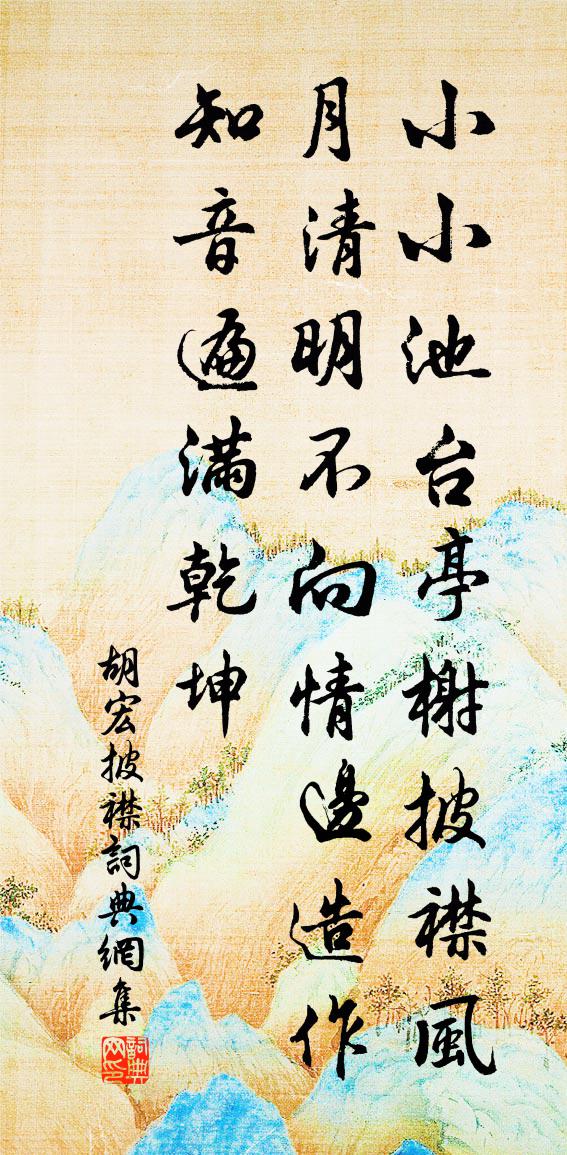 小小池台亭榭披襟風
月清明不向情邊造作
知音遍滿乾坤
胡宏披襟詞典網集
詞典网印